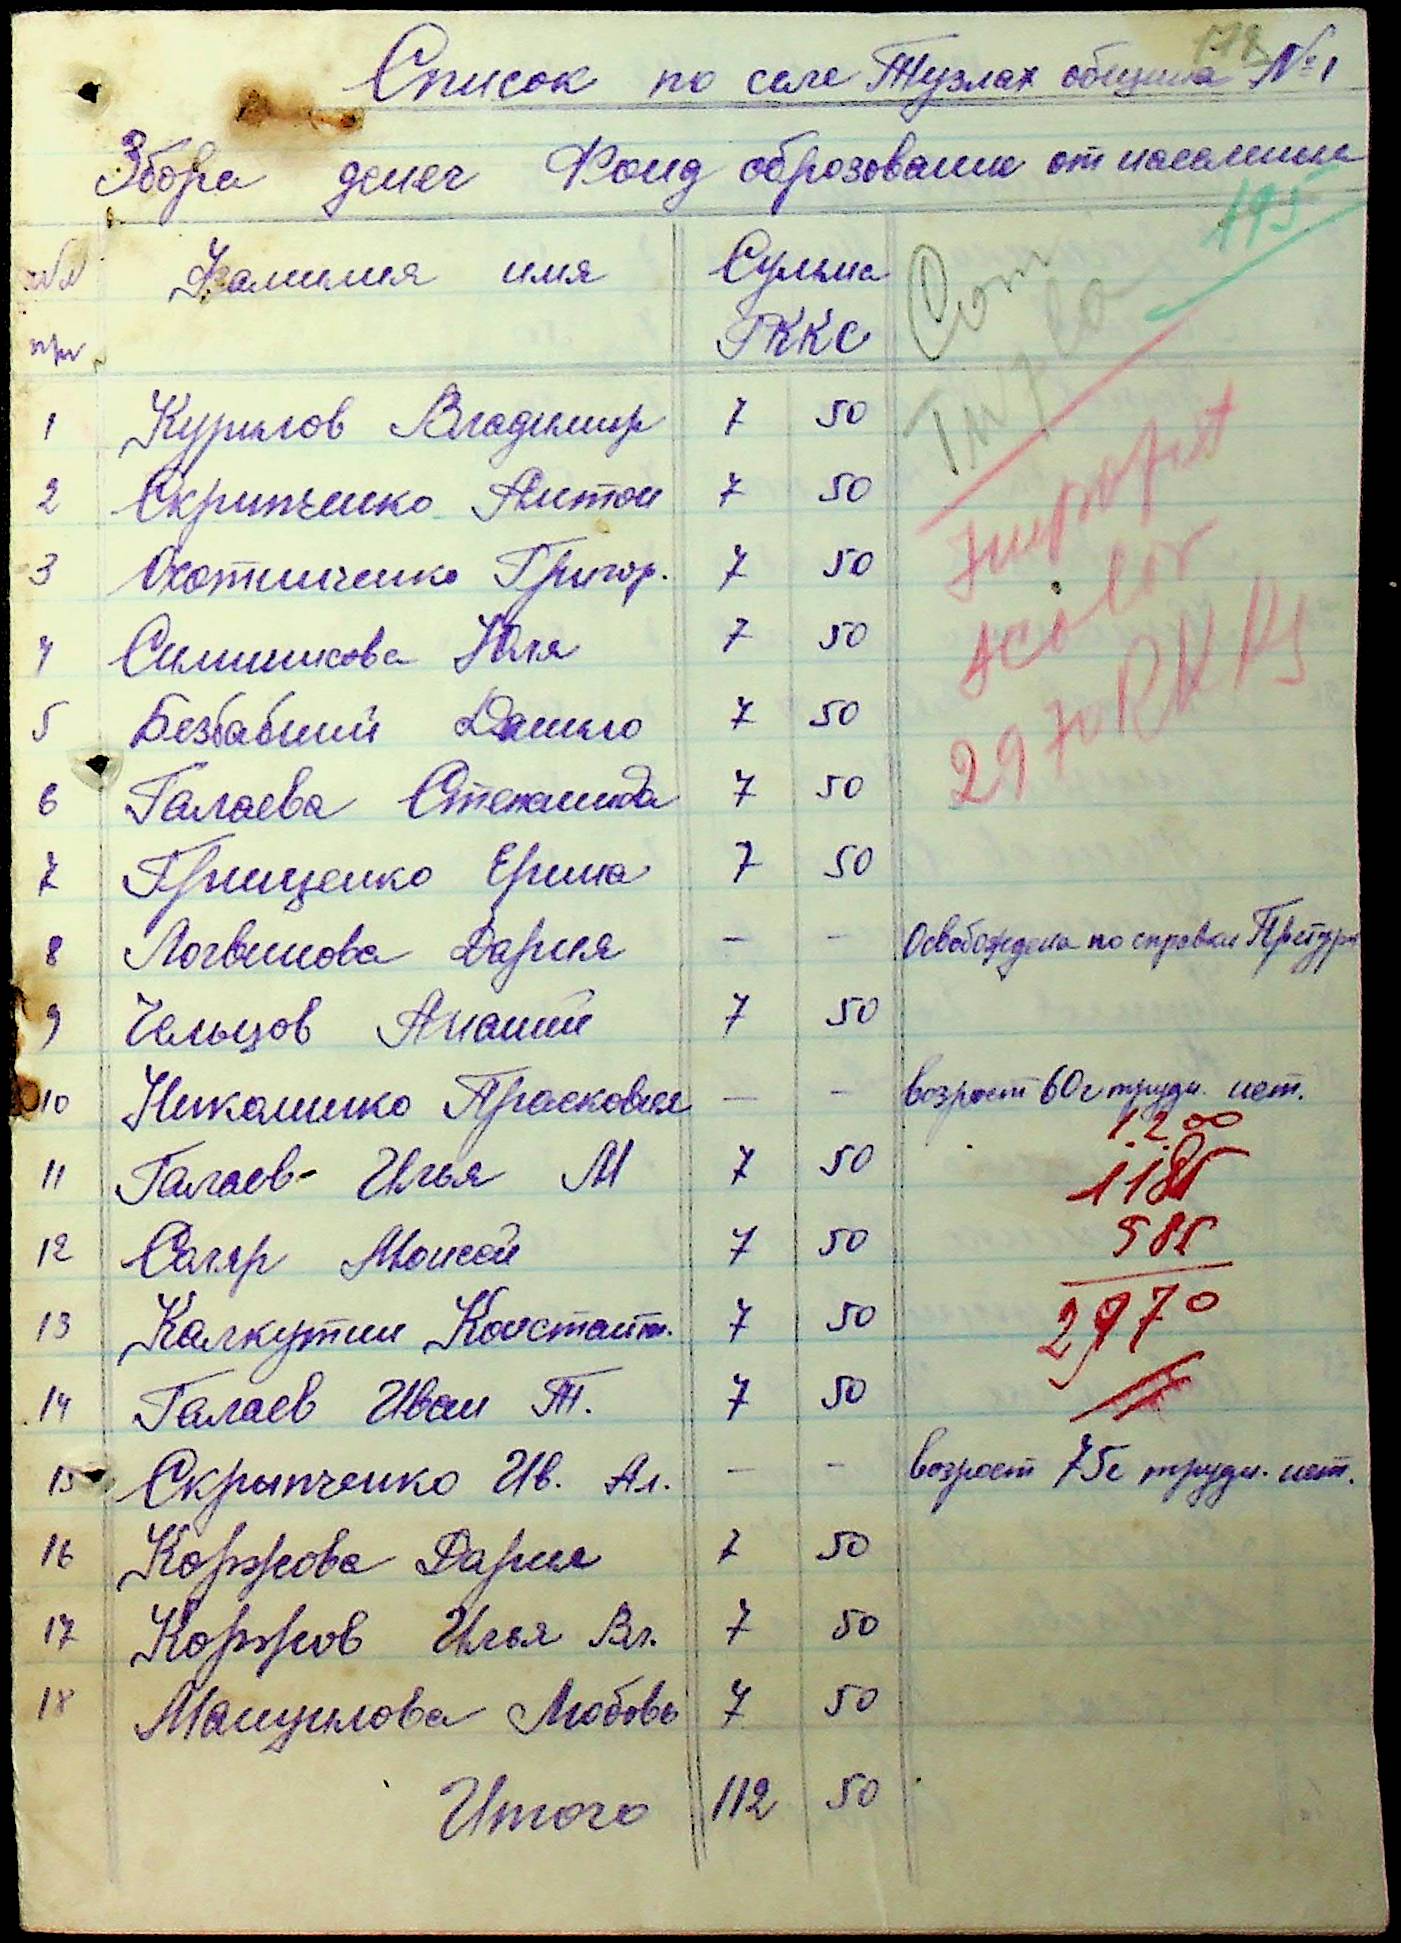 178
Список по селе Тузлах община №1
Збора денег Фонд оброзование от населения
195
№№ Фамилия имя Сумма
пр РККС
Com
Tuzla
1 Курилов Владимир 7 50
2 Скрипченко Антон 7 50
3 Охотниченко Григор. 7 50
4 Симникова Юля 7 50
5 Безбабний Данило 7 50
Impozit
scolar
2970 RKKS
6 Галаева Степанида 7 50
7 Грищенко Ерина 7 50
8 Логвинова Дария – – Освобождена по справки Претуры
9 Чельцов Ананий 7 50
10 Николенко Прасковия – – возрост 60 г трудн. нет.
1200
11 Галаев- Илья М 7 50
1185
12 Соляр Моисей 7 50
585
13 Калкутин Констант. 7 50
2970
14 Галаев Иван Т. 7 50
15 Скрыпченко Ив. Ал. – – возрост 75 г трудн. нет.
16 Коржова Дария 7 50
17 Коржов Илья Вл. 7 50
18 Мануилова Любовь 7 50
Итого 112 50